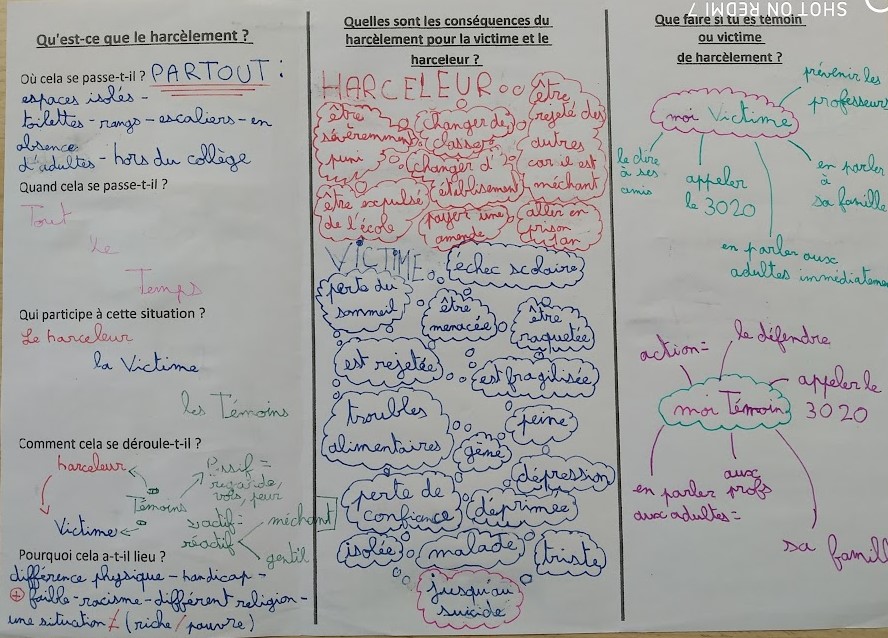 Qu'est-ce que le harcèlement ?
Où cela se passe-t-il ? PARTOUT :
espaces isolés -
toilettes - rangs - escaliers - en
absence
d'adultes - hors du collège
Quand cela se passe-t-il ?
Tout
Le
Temps
Qui participe à cette situation ?
Le harceleur
la Victime
les Témoins
Comment cela se déroule-t-il ?
harceleur
Victime
Témoins
Passif =
regarde,
peur
réactif
méchant
gentil
Pourquoi cela a-t-il lieu ?
différence physique - handicap -
+ faible - racisme - différent religion -
une situation ≠ (riche / pauvre)
Quelles sont les conséquences du
harcèlement pour la victime et le
harceleur ?
HARCELEUR
être
sévèrement
puni
changer de
classe
changer d'
établissement
être
rejeté des
autres
car il est
méchant
être expulsé
de l'école
payer une
amende
aller en
prison
1an
VICTIME
échec scolaire
perte du
sommeil
être
menacée
être
raquetée
est rejetée
est fragilisée
troubles
alimentaires
peine
gène
dépression
perte de
confiance
déprimée
isolée
malade
triste
jusqu'au
suicide
Que faire si tu es témoin
ou victime
de harcèlement ?
moi Victime
prévenir les
professeurs
le dire
à ses
amis
appeler
le 3020
en parler
à
sa famille
en parler aux
adultes immédiatement
moi Témoin
action=
le défendre
appeler le
3020
en parler
aux adultes=
aux
profs
sa famill
SHOT ON REDMI 7